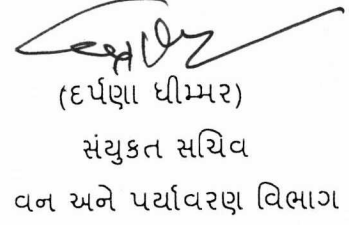 (દર્પણા ધીમ્મર)
સંયુકત સચિવ
વન અને પર્યાવરણ વિભાગ